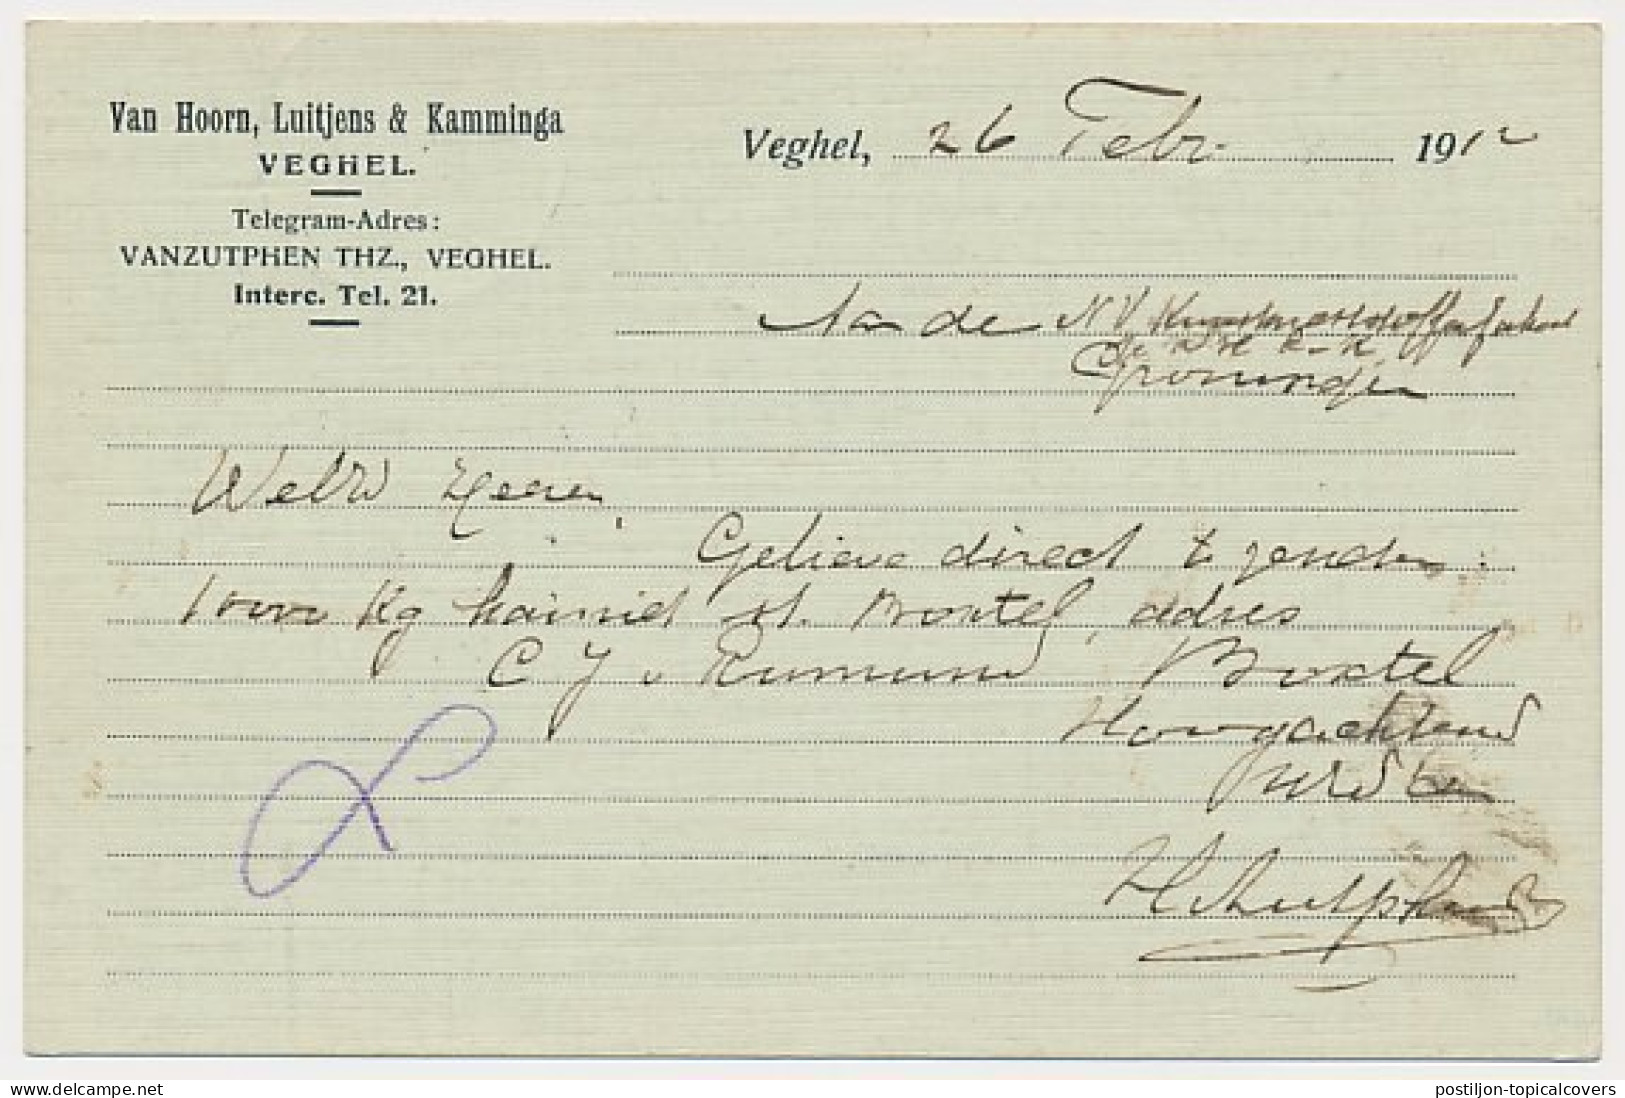 Van Hoorn, Luitjens & Kamminga
VEGHEL.
Telegram-Adres:
VANZUTPHEN THZ., VEGHEL.
Interc. Tel. 21.
Veghel, 26 Febr. 1912
Aan de N V Kunstmeststoffenfabriek
Groningen
WelEd Heeren,
Gelieve direct te zenden:
10000 Kg kainiet st. Boxtel, adres
C J v Rumund, Boxtel
Hoogachtend
H v Zutphen
Delcampe.net
postiljon-topicalcovers